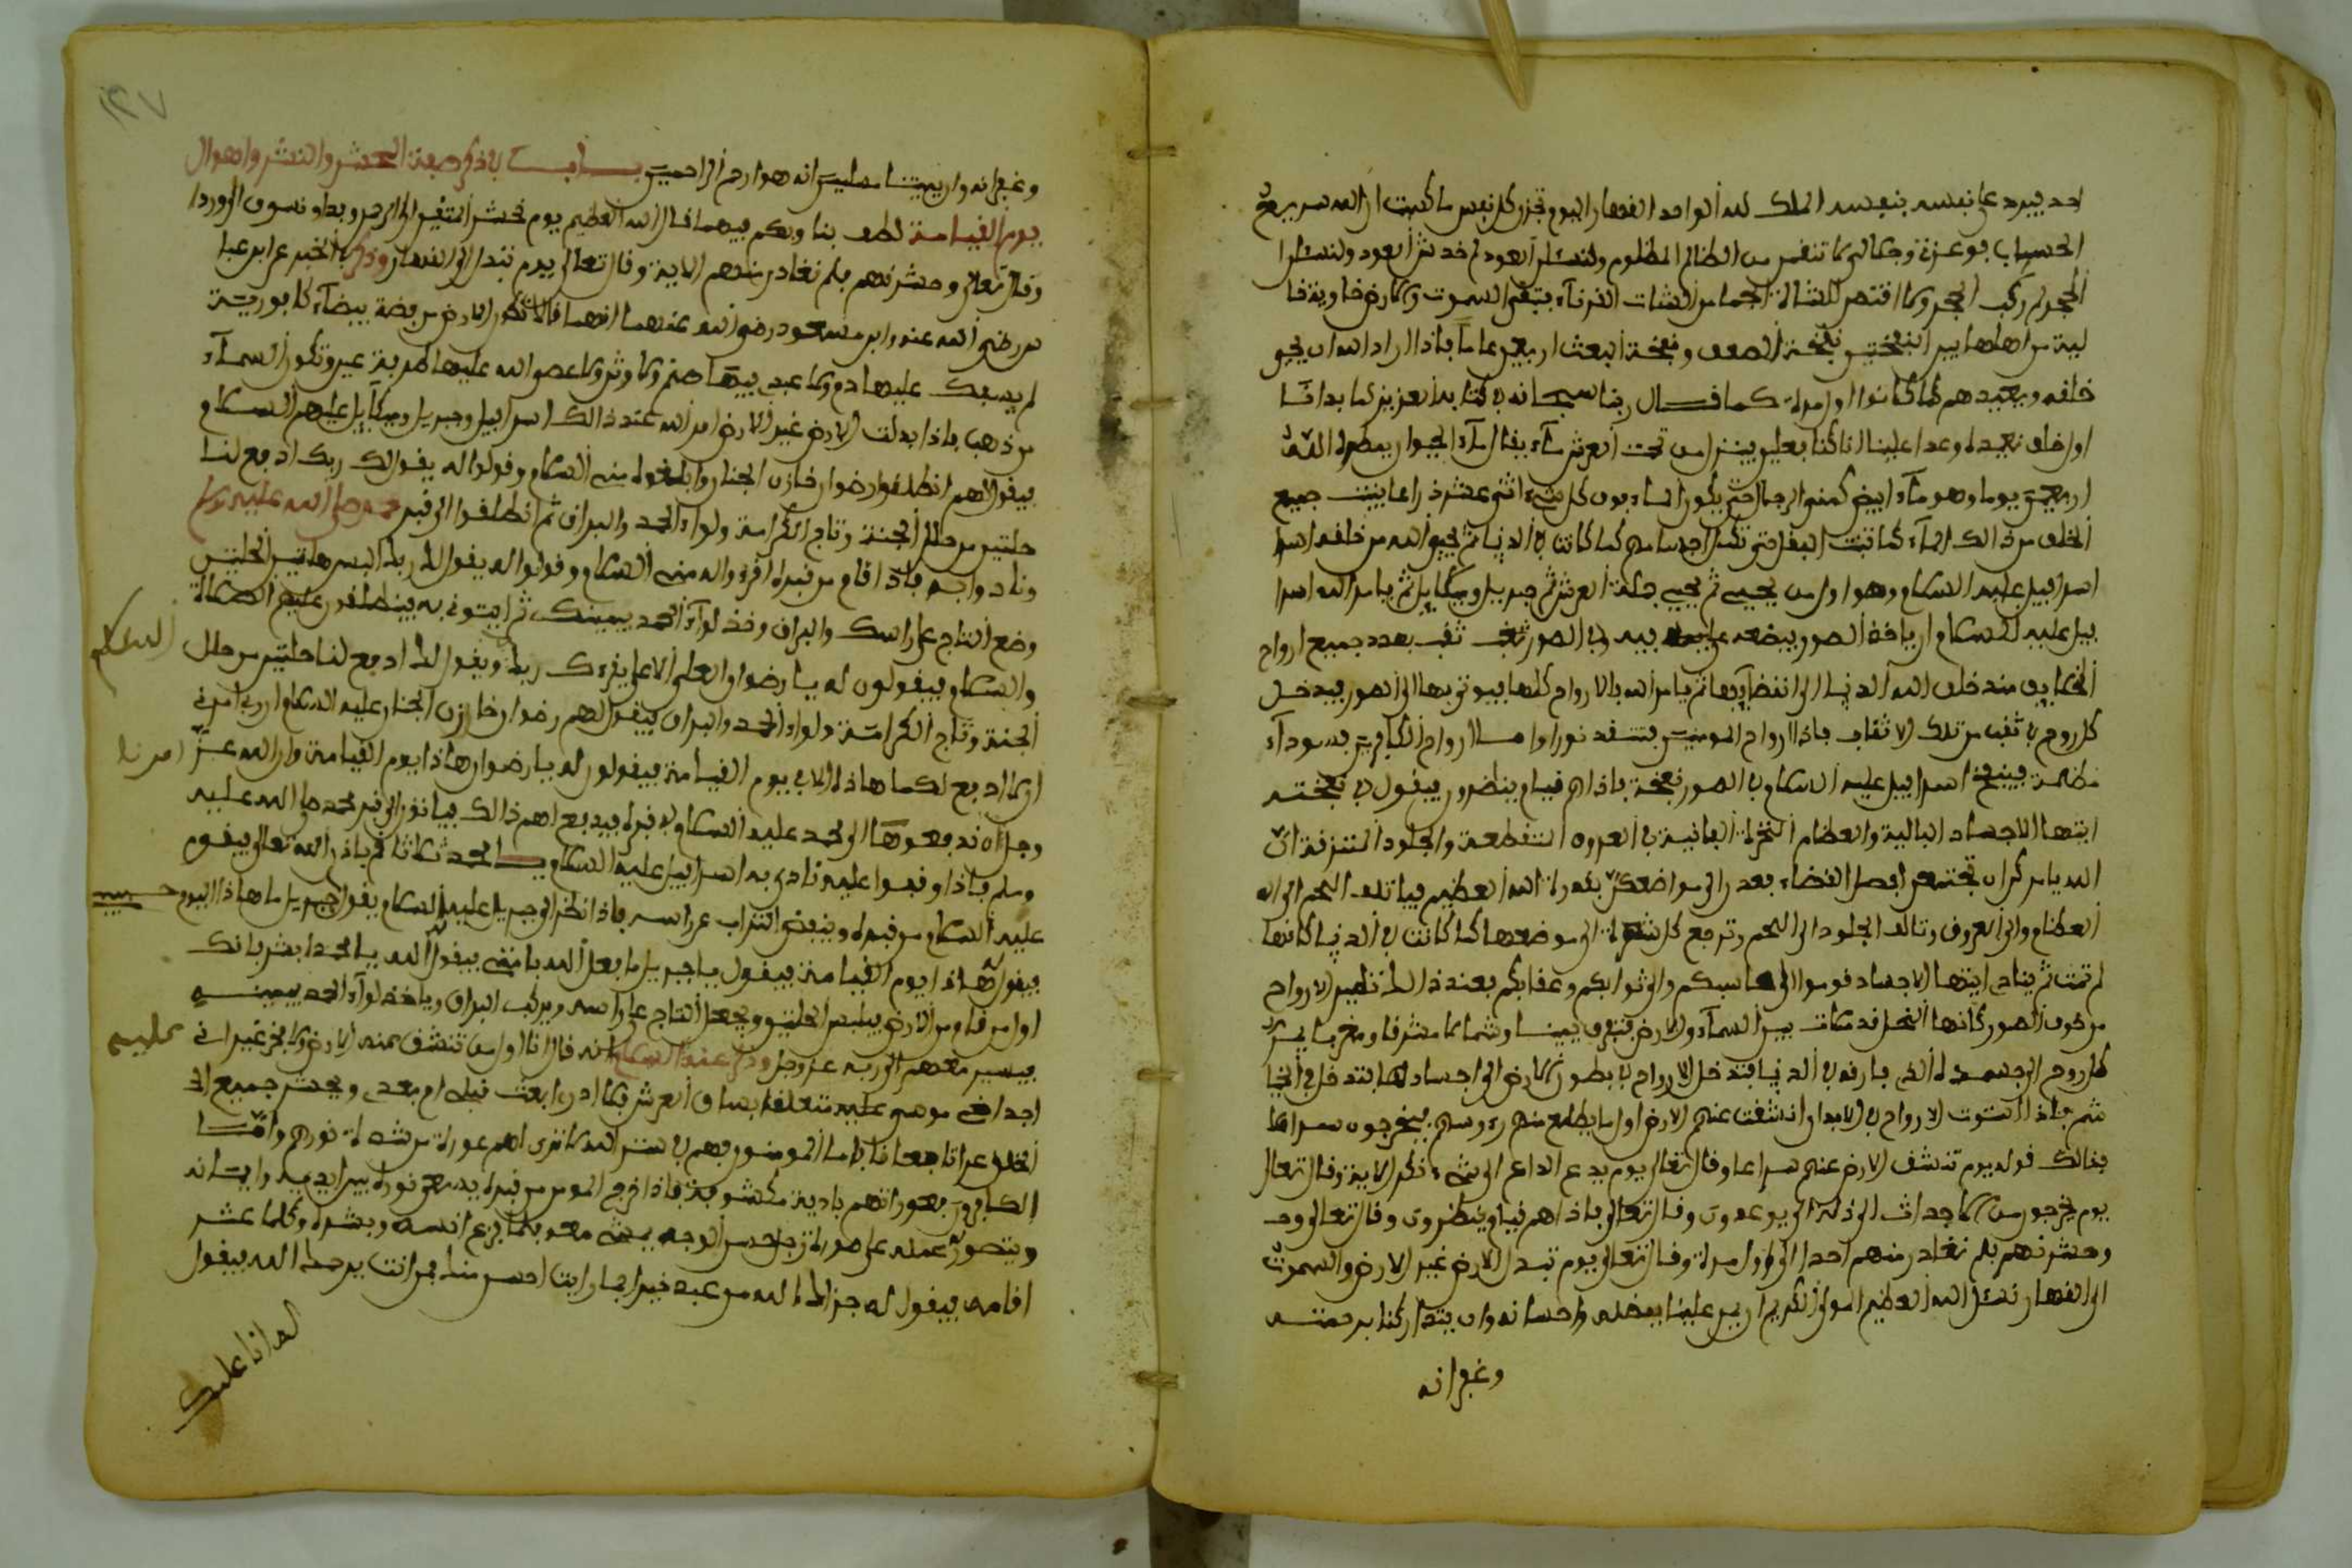 احد فيرد على نفسه بنفسه الملك لله الواحد القهار اليوم تجزى كل نفس ما كسبت ان الله سريع
الحساب فوعزتي وجلالي لانتقمن من الظالم للمظلوم ولنسئلن العود لم خدش العود ولنسئلن
الحجر لم ركب الحجر ولاقتصن للشاة الجما من الشات القرناء فتبقى السموت والارض خاوية خا
لية من اهلها بين النفختين نفخة الصعق ونفخة البعث اربعين عاما فاذا اراد الله ان يحيي
خلقه ويعيدهم كما كانوا اول مرة كما قال ربنا سبحانه في كتابه العزيز كما بدانا
اول خلق نعيده وعدا علينا انا كنا فعلين ينزل من تحت العرش ماء يقال له ماء الحيوان يمطره الله
اربعين يوما وهو ماء ابيض كمني الرجال حتى يكون الماء فوق كل شيء اثنى عشر ذراعا فينبت جميع
الخلق من ذالك الماء كما تنبت البقل حتى تكمل اجسامهم كما كانت في الدنيا ثم يحيي الله من خلقه اسرا
اسرافيل عليه السلام وهو اول من يحيى ثم يحيي حملة العرش ثم جبريل وميكاييل ثم يامر الله اسرا
فيل عليه السلام ان ياخذ الصور فيضعه على فيه وفي الصور ثقب ثقب بعدد جميع ارواح
الخلايق منذ خلق الله الدنيا الى انقضايها ثم يامر الله بالارواح كلها فيوتى بها الى الصور فيدخل
كل روح في ثقب من تلك الاثقاب فاذا ارواح المومنين تتقد نورا واما ارواح الكافرين فسوداء
مظلمة فينفخ اسرافيل عليه السلام في الصور نفخة فاذا هم قيام ينظرون فيقول في نفخته
ايتها الاجساد البالية والعظام النخرة الفانية في العروق المتقطعة والجلود المتمزقة ان
الله يامركن ان تجتمعن لفصل القضاء فعدن الى مواضعكن بقدرة الله العظيم فياتلف اللحم الى ال
العظام والى العروق وتالف الجلود الى اللحم وترجع كل شعرة الى موضعها كما كانت في الدنيا كانها
لم تمت ثم ينادي ايتها الاجساد قوموا الى محاسبكم والى ثوابكم وعقابكم فعند ذالك تطير الارواح
من خروق الصور كانها النحل قد ملات بين السماء والارض فتفرق يمينا وشمالا مشرقا ومغربا فيمر
كل روح الى جسده الذي فارقه في الدنيا فتدخل الارواح في بطون الارض الى اجسادها فتدخل في الخيا
شم فاذا استوت الارواح في الابدان انشقت عنهم الارض اول ما يطلع منهم رءوسهم فيخرجون سراعا
فذالك قوله يوم تشقق الارض عنهم سراعا وقال تعالى يوم يدع الداع الى شيء نكر الاية وقال تعالى
يوم يخرجون من الاجداث الى الذي يوعدون وقال تعالى فاذا هم قيام ينظرون وقال تعالى وحـ
وحشرنهم فلم نغادر منهم احدا الى اول مرة وقال تعالى يوم تبدل الارض غير الارض والسموت
الى القهار نسئل الله العظيم المولى الكريم ان يمن علينا بفضله واحسانه وان يتداركنا برحمته
وغفرانه
وغفرانه وان يميتنا مسلمين انه هو ارحم الراحمين باب في ذكر صفة الحشر والنشر واهوال
يوم القيامة لطف بنا وبكم فيهما قال الله العظيم يوم نحشر المتقين الى الرحمن وفدا ونسوق الى وردا
وقال تعالى وحشرنهم فلم نغادر منهم الاية وقال تعالى يوم تبدل الى القهار وذكر في الخبر عن ابن عبا
س رضي الله عنه وابن مسعود رضي الله عنهما انهما قالا تكون الارض من فضة بيضاء كافورية
لم يسفك عليها دم ولا عبد فيها صنم ولا وثن ولا عصوا الله عليها طرفة عين وتكون السماء
من ذهب فاذا بدلت الارض غير الارض امر الله عند ذالك اسرافيل وجبريل وميكاييل عليهم السلام
فيقول لهم انطلقوا رضوان خازن الجنان وابلغوه مني السلام وقولوا له يقول لك ربك ادفع لنا
حلتين من حلل الجنة وتاج الكرامة ولواء الحمد والبراق ثم انطلقوا الى قبر محمد صلى الله عليه وسلم
ونادوا به فاذا قام من قبره اقرءوا له مني السلام وقولوا له يقول لك ربك البس هاتين الحلتين
وضع التاج على راسك والبراق وخذ لواء الحمد بيمينك ثم ايتوني به فينطلقون عليهم الصلاة
والسلام فيقولون له يا رضوان العلي الاعلى يقرءك ربك ويقول لك ادفع لنا حلتين من حلل
السلام
الجنة وتاج الكرامة ولواء الحمد والبراق فيقول لهم رضوان خازن الجنان عليه السلام ان ربي امرني
ان لا ادفع لكما هاذا الا في يوم القيامة فيقولون له يا رضوان هاذا يوم القيامة وان الله عز
امرنا
وجل ان ندفعوها الى محمد عليه السلام في قبره فيدفع لهم ذالك فياتون الى قبر محمد صلى الله عليه
وسلم فاذا وقفوا عليه نادى به اسرافيل عليه السلام يا محمد ثلاثا قم باذن الله تعالى فيقوم
عليه السلام من قبره وينفض التراب عن راسه فاذا نظر الى جبريل عليه السلام يقول جبريل ما هاذا اليوم
حبيبي
فيقول هاذا يوم القيامة فيقول يا جبريل ما فعل الله بامتي فيقول الله يا محمد ابشر فانك
اول من قام من الارض فيلبس الحلتين ويجعل التاج على راسه ويركب البراق وياخذ لواء الحمد بيمينه
فيسير معهم الى ربه عز وجل وذكر عنه السلام انه قال انا اول من تنشق عنه الارض ولا فخر غير اني
عليه
اجد اخي موسى عليه متعلقا بساق العرش فلا ادري ابعث قبلي ام بعدي ويحشر جميع الخ
الخلق عراتا حفاتا فاما المومنون فهم في ستر الله لا ترى لهم عورة من شدة نورهم واما
الكافرون فعوراتهم بادية مكشوفة فاذا خرج المومن من قبره يسعى نوره بين ايديه وايمانه
ويتصور عمله على صورة رجل حسن الوجه يمشي معه فكلما فزع انسه وبشره وكلما عثر
اقامه فيقول له جزاك الله من عبد خيرا فما رايت احسن منك فمن انت يرحمك الله فيقول
له انا عملك